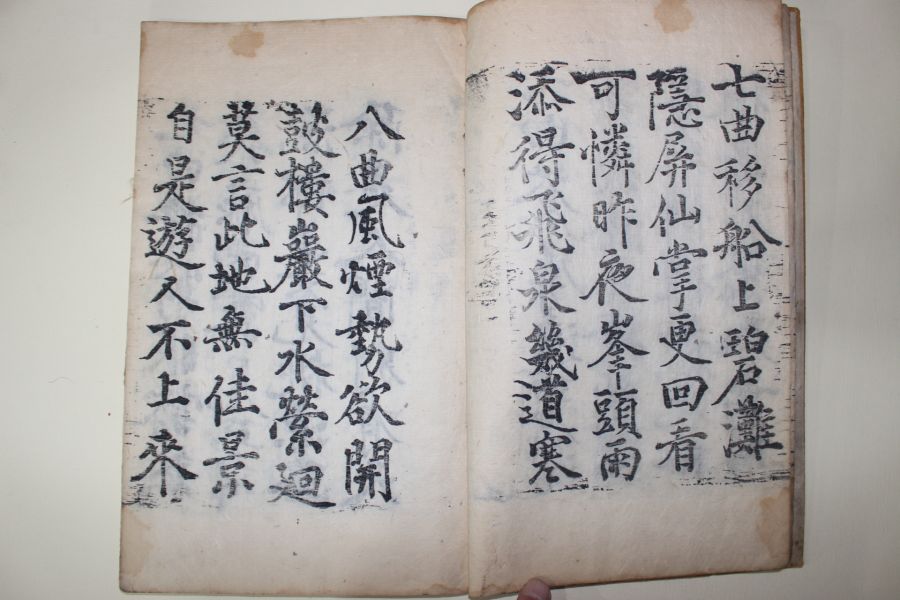 七曲移船上碧灘
隱屏仙掌更回看
可憐昨夜峯頭雨
添得飛泉幾道寒
八曲風煙勢欲開
鼓樓巖下水縈廻
莫言此地無佳景
自是遊人不上來